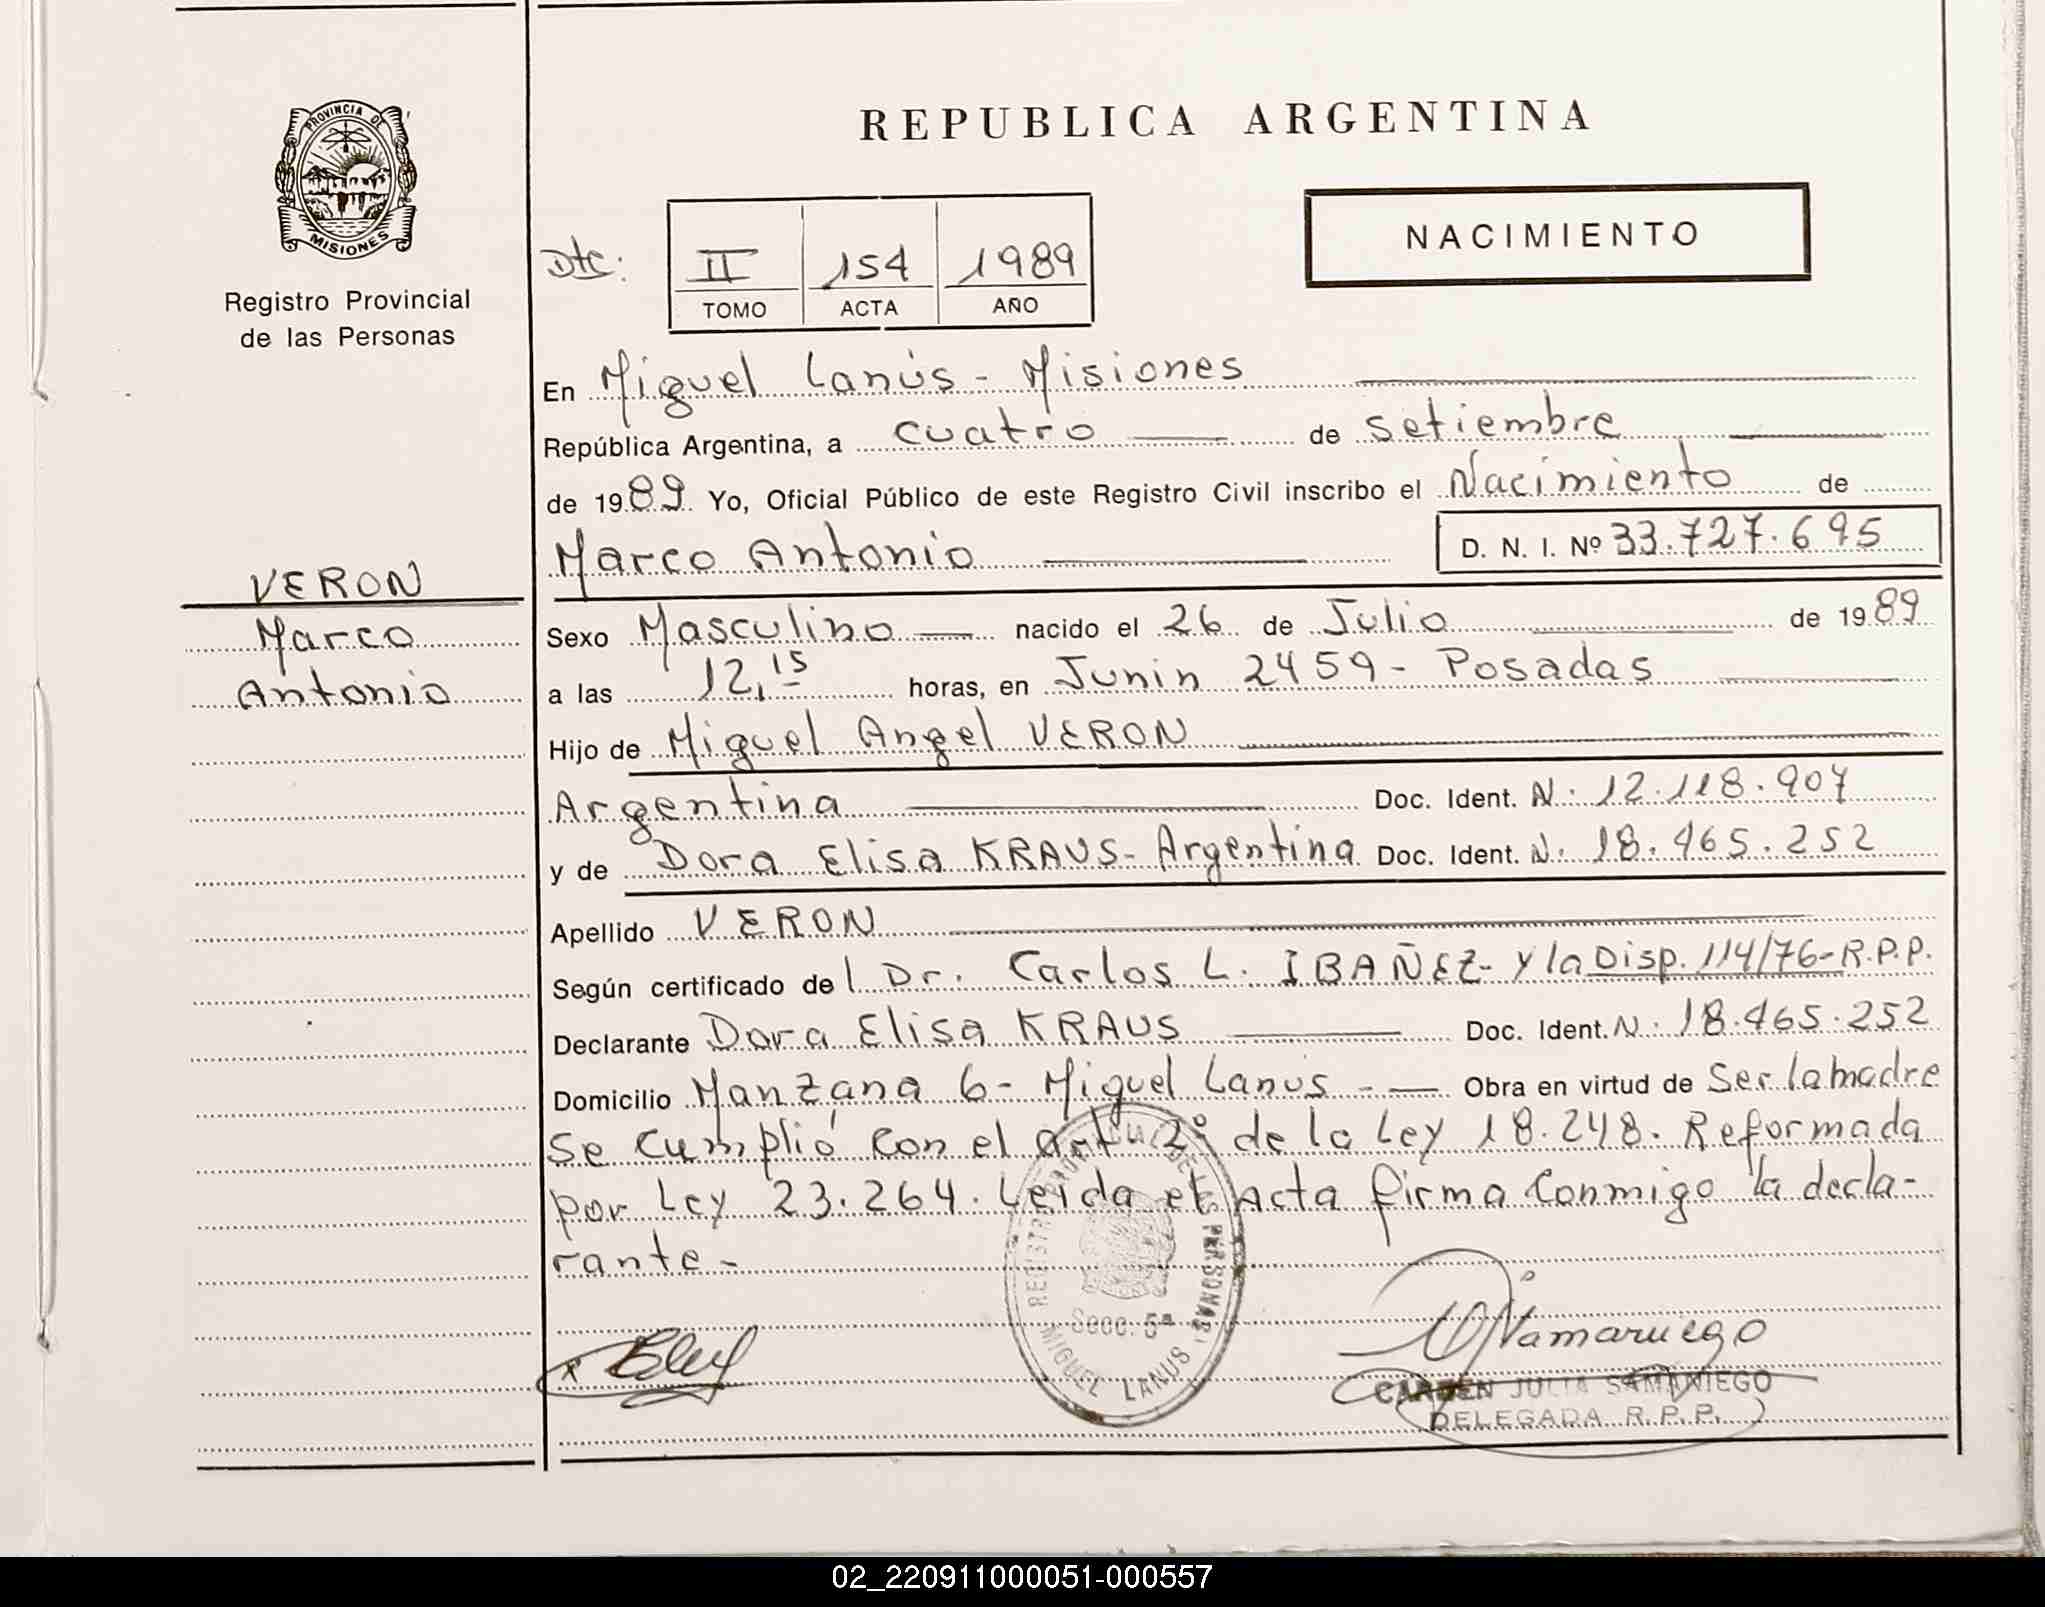 PROVINCIA DE
MISIONES
Registro Provincial
de las Personas
REPUBLICA ARGENTINA
NACIMIENTO
Dto: II 154 1989
TOMO ACTA AÑO
En Miguel Lanús - Misiones
República Argentina, a cuatro de Setiembre
de 1989 Yo, Oficial Público de este Registro Civil inscribo el Nacimiento de
Marco Antonio D. N. I. Nº 33.727.695
VERON
Marco
Antonio
Sexo Masculino nacido el 26 de Julio de 1989
a las 12,15 horas, en Junin 2459 - Posadas
Hijo de Miguel Angel VERON
Argentina Doc. Ident. N. 12.118.907
y de Dora Elisa KRAUS - Argentina Doc. Ident. N. 18.465.252
Apellido VERON
Según certificado del Dr. Carlos L. IBAÑEZ - y la Disp. 114/76 - R.P.P.
Declarante Dora Elisa KRAUS Doc. Ident. N. 18.465.252
Domicilio Manzana 6 - Miguel Lanús - Obra en virtud de Ser la madre
Se cumplió con el art 2º de la Ley 18.248. Reformada
por Ley 23.264. Leida el Acta firma conmigo la decla-
rante -
REGISTRO PROVINCIAL DE LAS PERSONAS
Secc. 5ª
MIGUEL LANUS
CARMEN JULIA SAMANIEGO
DELEGADA R. P. P.
02_220911000051-000557